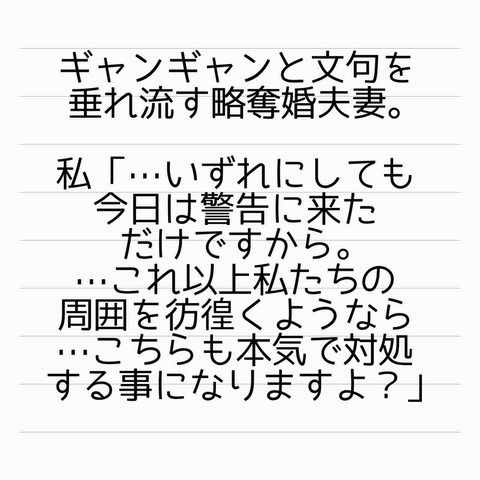 ギャンギャンと文句を
垂れ流す略奪婚夫妻。
私「…いずれにしても
今日は警告に来た
だけですから。
…これ以上私たちの
周囲を彷徨くようなら
…こちらも本気で対処
する事になりますよ？」